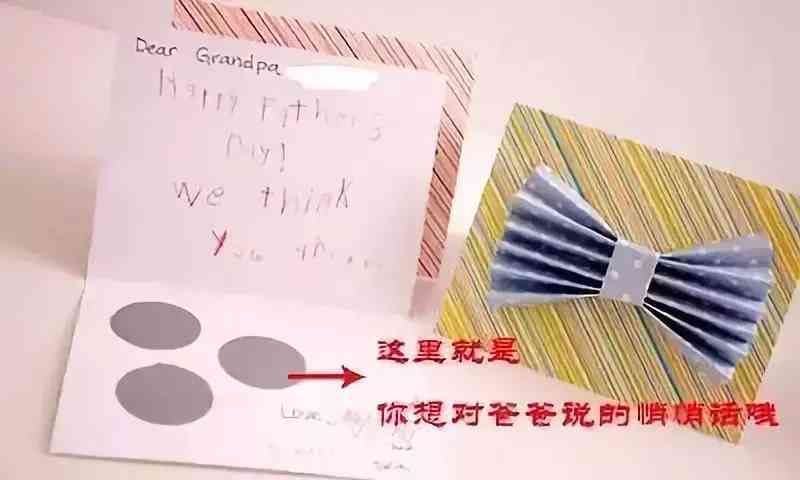 Dear Grandpa
Happy Father's
Day!
We think
You
Love,
这里就是
你想对爸爸说的悄悄话哦